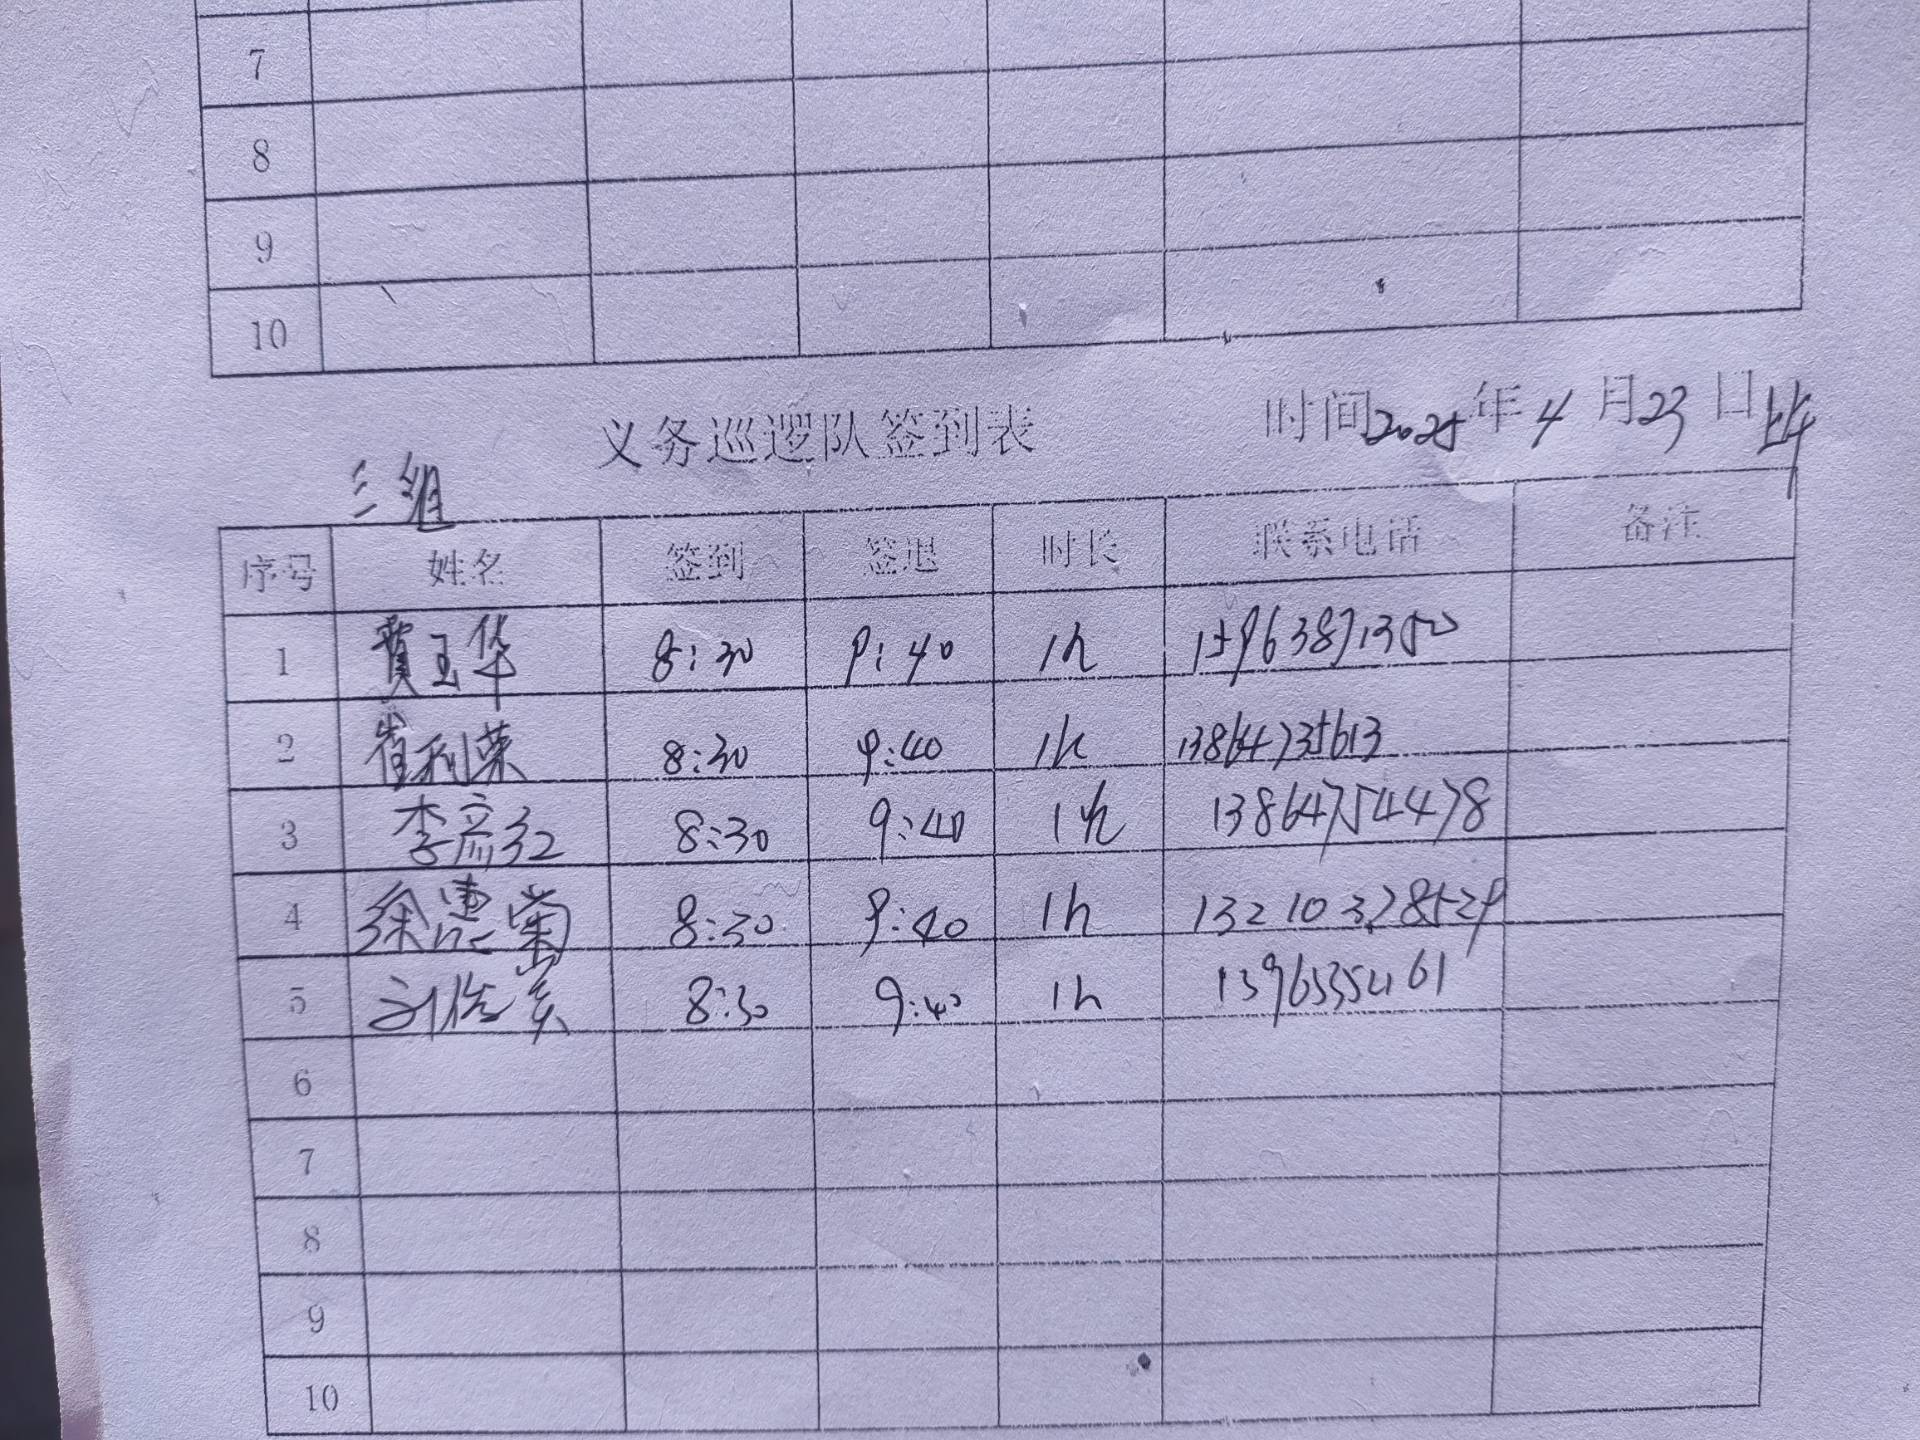 7
8
9
10
义务巡逻队签到表 时间2025年4月23日
三组
序号 姓名 签到 签退 时长 联系电话 备注
1 贾玉华 8:30 9:40 1h 15963871350
2 崔利荣 8:30 9:40 1h 13864735613
3 李彦红 8:30 9:40 1h 13864754478
4 徐惠菊 8:30 9:40 1h 13210378529
5 刘 8:30 9:40 1h
6
7
8
9
10